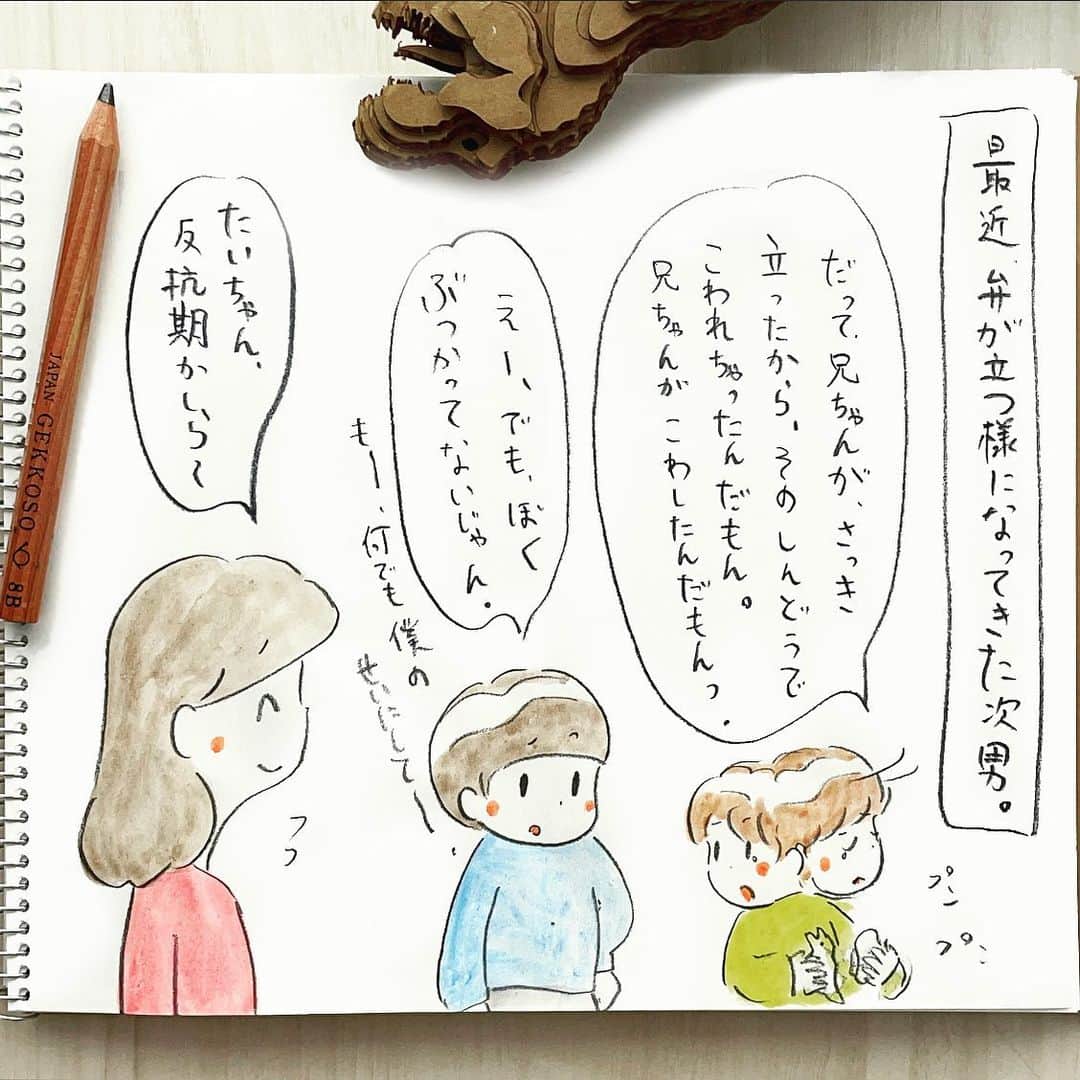 最近、弁が立つ様になってきた次男。
だって、兄ちゃんが、さっき
立ったから、そのしんどうで
こわれちゃったんだもん。
兄ちゃんがこわしたんだもんっ.
プン
プン
えー、でも、ぼく
ぶつかってないじゃん.
もー、何でも僕の
せいにしてー.
たいちゃん、
反抗期かしら〜
フフ
JAPAN GEKKOSO 8B